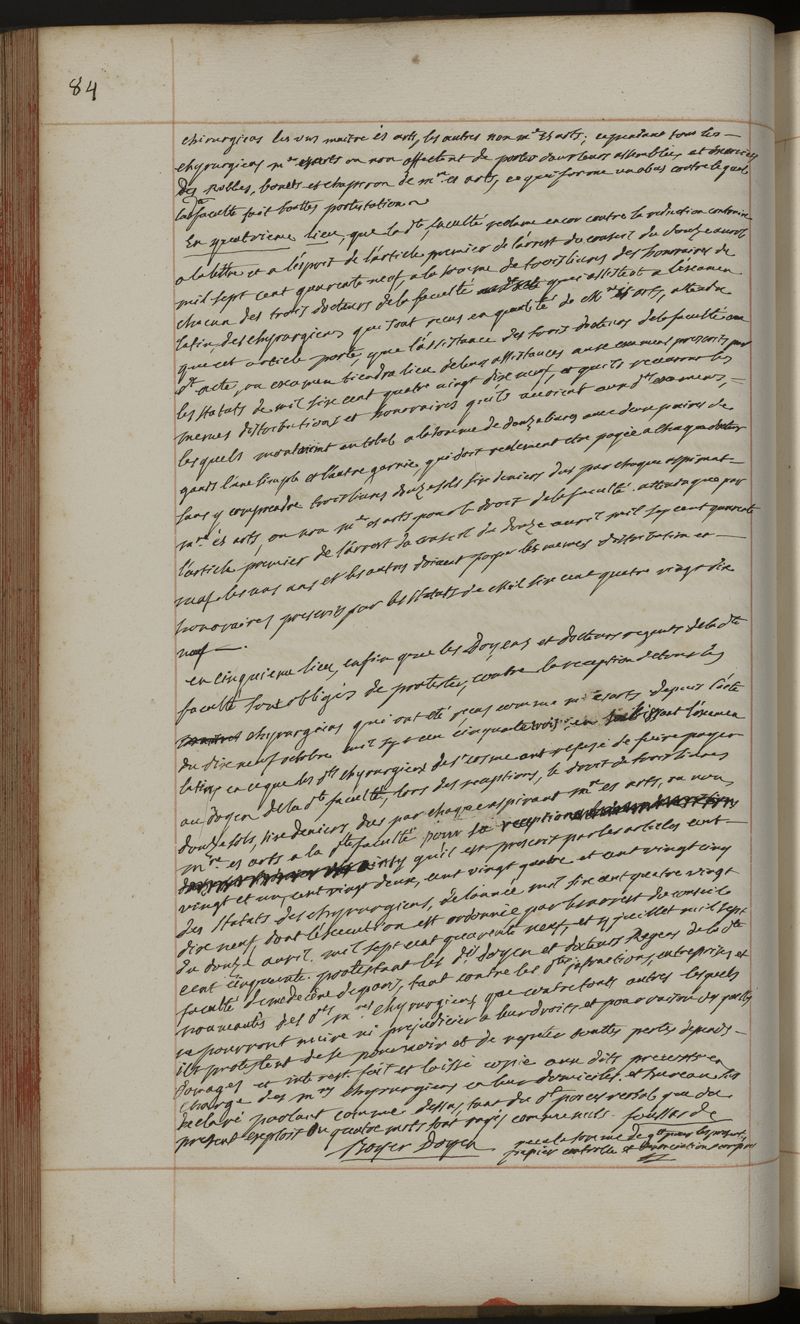 84
chirurgiens les uns maitre és arts, les autres non mes és arts; cependant tous les
chyrurgiens mes és arts ou non affectent de porter dans leurs assemblées et exercices
des Robbes, bonets et chapperon de mes és arts, ce qui forme un abus contre lequel
lade faculté fait touttes protestations
En quatrieme lieu, que lade faculté reclame encor contre la reduction contraire
a la lettre et a l'esprit de l'article premier de l'arrest du conseil du douze avril
mil sept cent quarente neuf, a la somme de trois livres des honoraires de
chacun des trois docteurs de la faculté qui assistent a l'examen
latin, des chyrurgiens qui sont recus en qualité de Mes és arts, attendu
que cet article porte, que l'assistance des trois docteurs de la faculté au
dt acte, ou examen tiendra lieu de leurs assistances aux examens prescrits par
les statuts de mil six cent quatre vingt dix neuf, et qu'ils recevront les
memes distributions et honoraires qu'ils avoient aux dts examens,
lesquels montoient au total a la somme de douze livres avec deux paires de
gands l'une simple et l'autre garnie, qui doit realement etre payée a chaque docteur
sans y comprendre trois livres douze sols six deniers dus par chaque aspirant
mes és arts, ou non mes és arts pour le droit de la faculté. attendu que par
l'article premier de l'arrest du conseil du douze avril mil sept cent quarente
neuf les uns et les autres doivent payer les memes distribution et
honoraires prescrits par les statuts de Mil six cent quatre vingt dix
neuf.
en cinquieme lieu, enfin que les Doyens et docteurs regents de lade
faculté sont obligés de protester, contre la reception de tous les
chyrurgiens qui ont été recus comme mes és arts depuis l'acte
du dix neuf octobre mil sept cen cinquante trois, en subissant l'examen
latin, en ce que les dts chyrurgiens de st cosme ont refusé de faire payer
au doyen de lade faculté, lors des receptions, le droit de trois livres
douze sols, six deniers, dus par chaque aspirant mes és arts, ou non
mes és arts a la de faculté pour sa reception
ainsy qu'il est prescrit par les articles cent
vingt et un, cent vingt deux, cent vingt quatre et cent vingt cinq
des statuts des chyrurgiens, de l'année mil six cent quatre vingt
dix neuf, dont l'execution est ordonnée, par l'arrest du conseil
du douze avril mil sept cent quarente neuf, et juillet mil sept
cent cinquante. protestant les dts doyen et docteurs Regens de la de
faculté de medecine de paris, tant contre les des infractions, entreprises et
nouveautés des dts mes chyrurgiens que contre touts autres lesquels
ne pourront nuire ni prejudicier a leur droits, et pour raison des quels
ils protestent de se pourvoir et de repeter touttes pertes depends
domages et interest. fait et laissé copie aux dits prevosts en
charge des mes chyrurgiens en leur domiciles et bureau
declaré parlant comme dessus, tant du dt proces verbal que du
present exploit ou quatre mots sont rayés comme nuls. foussarde
Boyer Doyen
recu la somme de pour les present,
papier controlle et